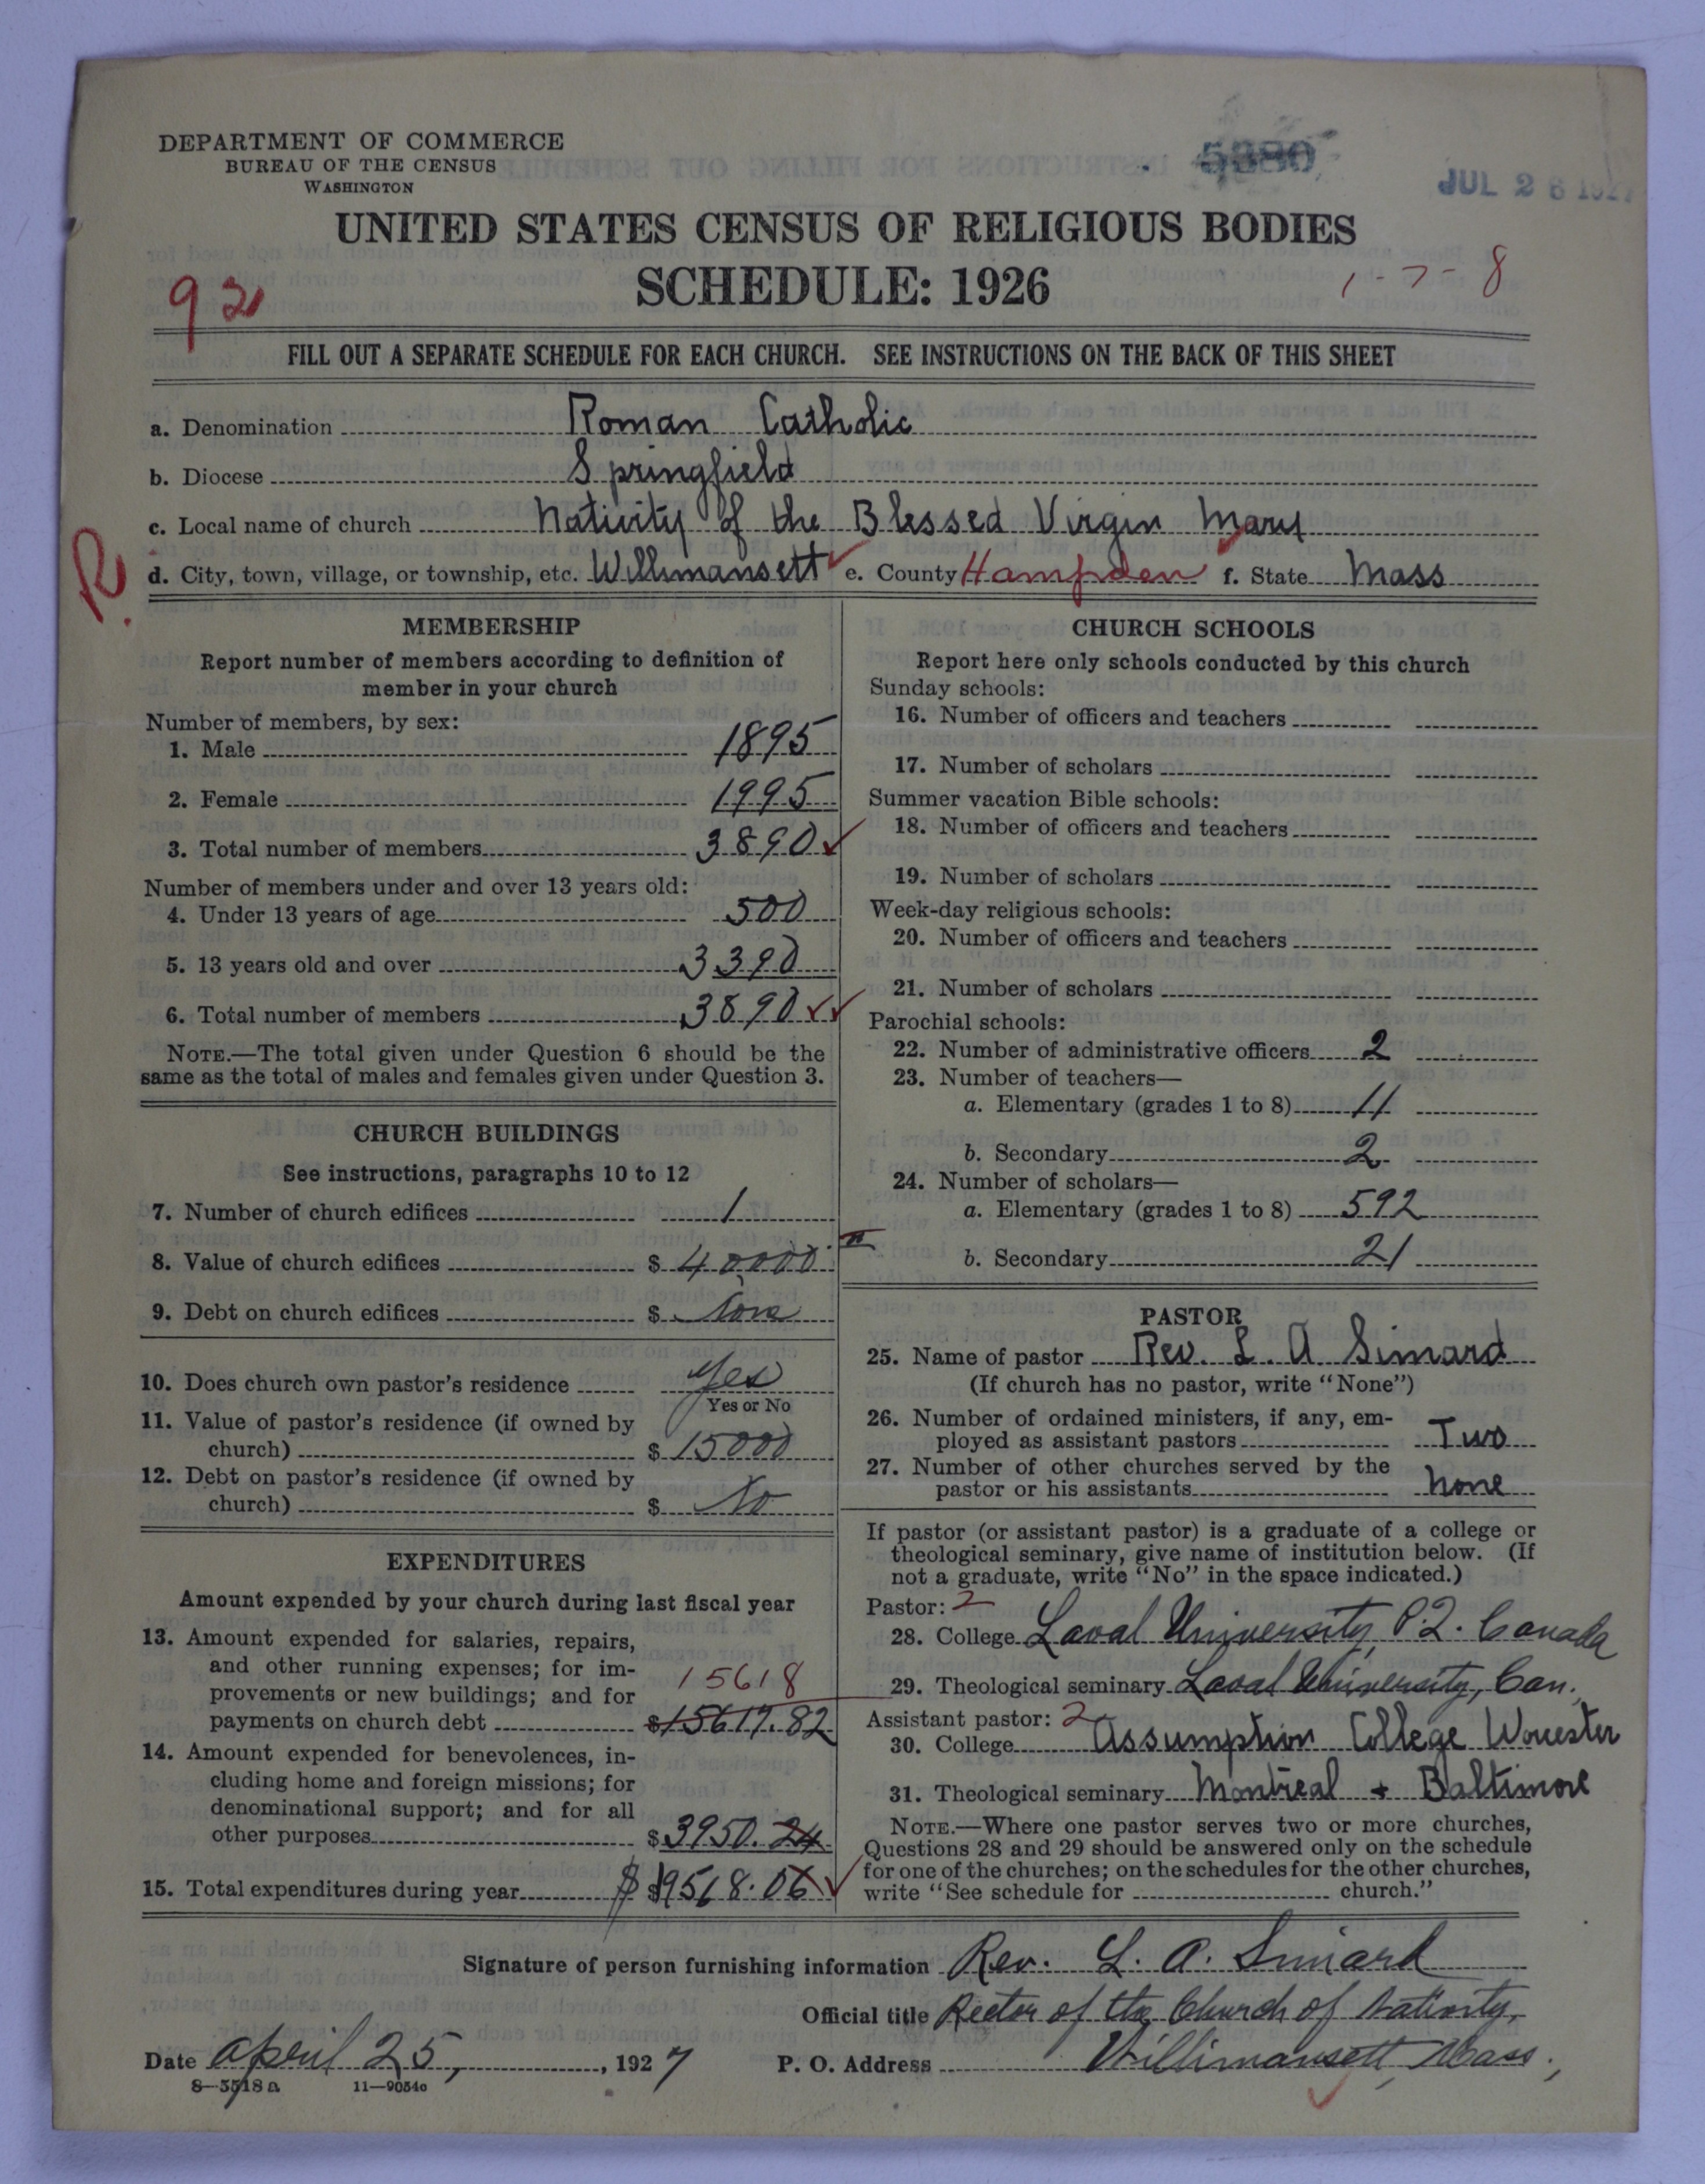 DEPARTMENT OF COMMERCE
BUREAU OF THE CENSUS
WASHINGTON
5880
JUL 26 192
UNITED STATES CENSUS OF RELIGIOUS BODIES
SCHEDULE: 1926
92
1-7-8
FILL OUT A SEPARATE SCHEDULE FOR EACH CHURCH. SEE INSTRUCTIONS ON THE BACK OF THIS SHEET
a. Denomination Roman Catholic
b. Diocese Springfield
c. Local name of church Nativity of the Blessed Virgin Mary
R.
d. City, town, village, or township, etc. Willimansett e. County Hampden f. State Mass
MEMBERSHIP
Report number of members according to definition of
member in your church
Number of members, by sex:
1. Male 1895
2. Female 1995
3. Total number of members 3890 ✓
Number of members under and over 13 years old:
4. Under 13 years of age 500
5. 13 years old and over 3390
6. Total number of members 3890 ✓✓
NOTE.—The total given under Question 6 should be the
same as the total of males and females given under Question 3.
CHURCH BUILDINGS
See instructions, paragraphs 10 to 12
7. Number of church edifices 1
8. Value of church edifices $ 40000
9. Debt on church edifices $ None
10. Does church own pastor's residence Yes
Yes or No
11. Value of pastor's residence (if owned by
church) $ 15000
12. Debt on pastor's residence (if owned by
church) $ No
EXPENDITURES
Amount expended by your church during last fiscal year
13. Amount expended for salaries, repairs,
and other running expenses; for im-
provements or new buildings; and for 15618
payments on church debt $15617.82
14. Amount expended for benevolences, in-
cluding home and foreign missions; for
denominational support; and for all
other purposes $3950.24
15. Total expenditures during year $ $19568.06 ✓
CHURCH SCHOOLS
Report here only schools conducted by this church
Sunday schools:
16. Number of officers and teachers
17. Number of scholars
Summer vacation Bible schools:
18. Number of officers and teachers
19. Number of scholars
Week-day religious schools:
20. Number of officers and teachers
21. Number of scholars
Parochial schools:
22. Number of administrative officers 2
23. Number of teachers—
a. Elementary (grades 1 to 8) 11
b. Secondary 2
24. Number of scholars—
a. Elementary (grades 1 to 8) 592
b. Secondary 21
PASTOR
25. Name of pastor Rev. L. A Simard
(If church has no pastor, write "None")
26. Number of ordained ministers, if any, em-
ployed as assistant pastors Two
27. Number of other churches served by the
pastor or his assistants none
If pastor (or assistant pastor) is a graduate of a college or
theological seminary, give name of institution below. (If
not a graduate, write "No" in the space indicated.)
Pastor: 2
28. College Laval University, P.Q. Canada
29. Theological seminary Laval University, Can.
Assistant pastor: 2
30. College Assumption College Worcester
31. Theological seminary Montreal + Baltimore
NOTE.—Where one pastor serves two or more churches,
Questions 28 and 29 should be answered only on the schedule
for one of the churches; on the schedules for the other churches,
write "See schedule for church."
Signature of person furnishing information Rev. L. A. Simard
Official title Rector of the Church of Nativity,
Date April 25, 1927 P. O. Address Willimansett, Mass.,
8—5518 a 11—9054c